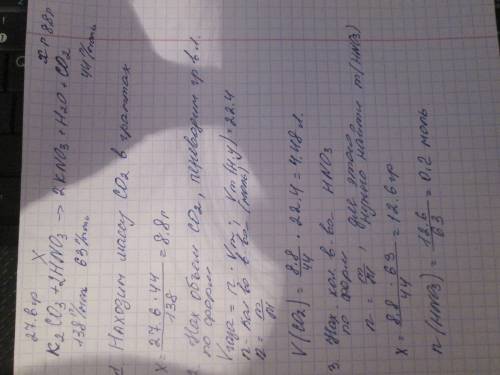 27.6 гр X x г 8.8 г
K2CO3 + 2HNO3 → 2KNO3 + H2O + CO2
138 г/моль 63 г/моль 44 г/моль
1 Находим массу CO2 в граммах
X = 27.6 · 44 / 138 = 8.8 г
Нах объем CO2, переводим гр в л.
по форм
Vгаза = n · Vm; Vm (н.у) = 22.4
n - кол во в-ва (моль)
n = m/M
V(CO2) = 8.8/44 · 22.4 = 4.48 л.
3. Нах кол в-ва HNO3
по форм
n = m/M, для этого нужно найти m(HNO3)
X = 8.8 · 63 / 44 = 12.6 гр
n(HNO3) = 12.6/63 = 0.2 моль